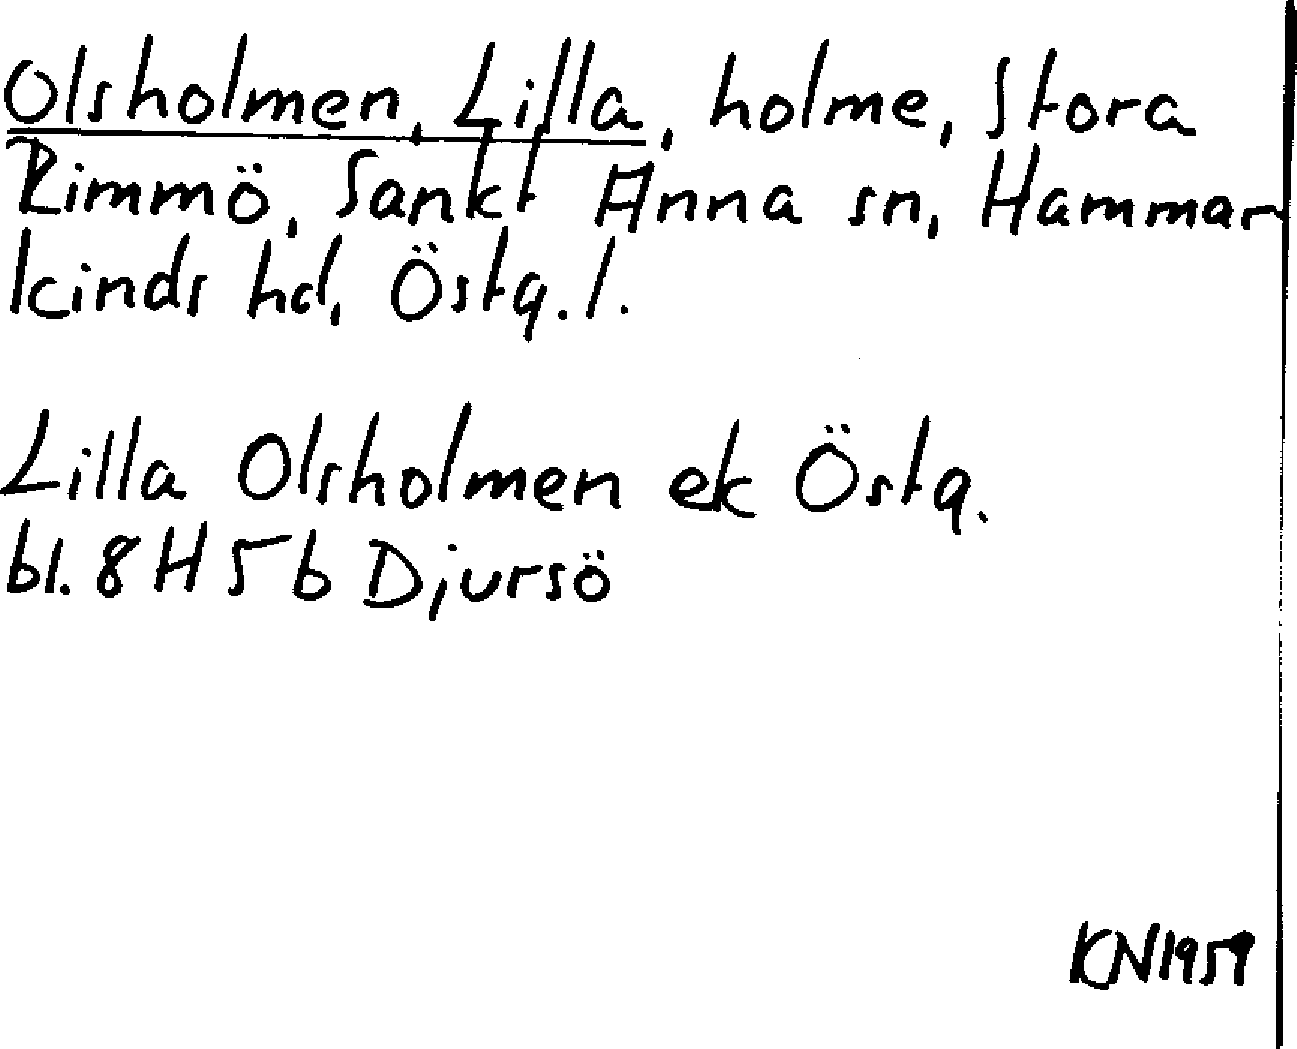 Olsholmen, Lilla, holme, Stora
Rimmö, Sankt Anna sn, Hammar
kinds hd, Östg. l.
Lilla Olsholmen ek Östg.
bl. 8H 5b Djursö
KN1959